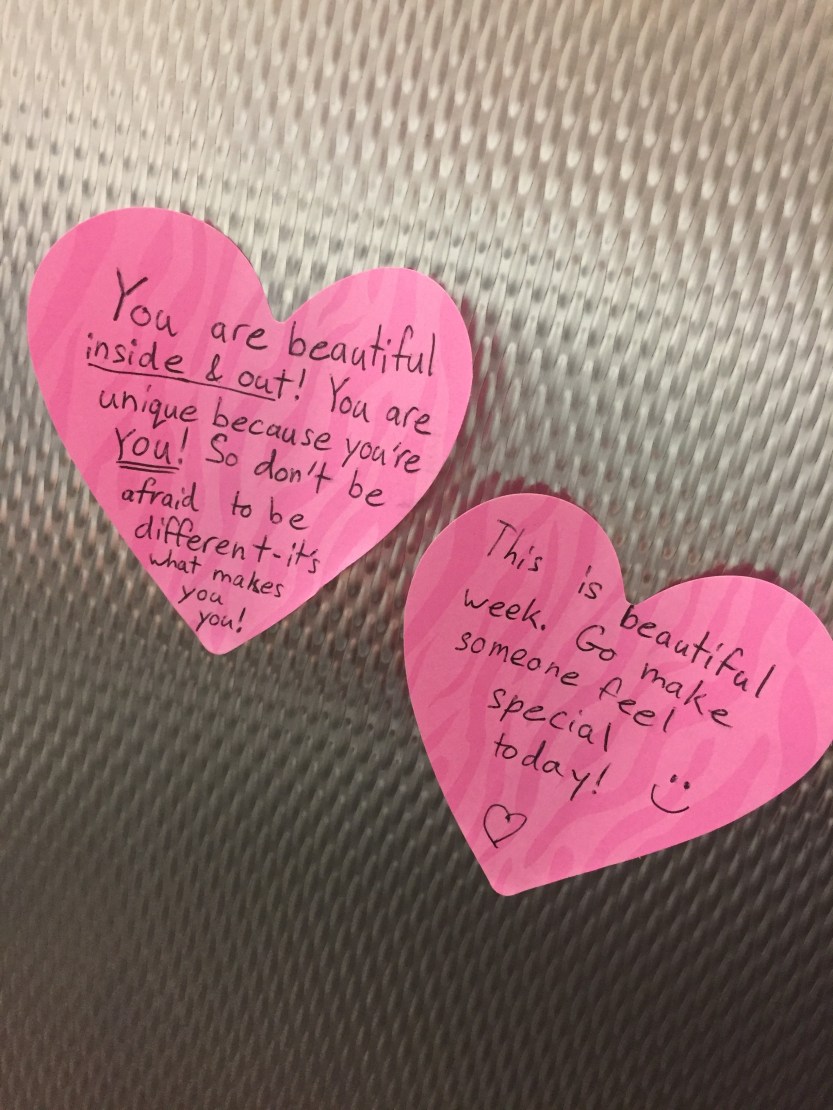 You are beautiful
inside & out! You are
unique because you're
YOU! So don't be
afraid to be
different-it's
what makes
you
you!
This is beautiful
week. Go make
someone feel
special
today!